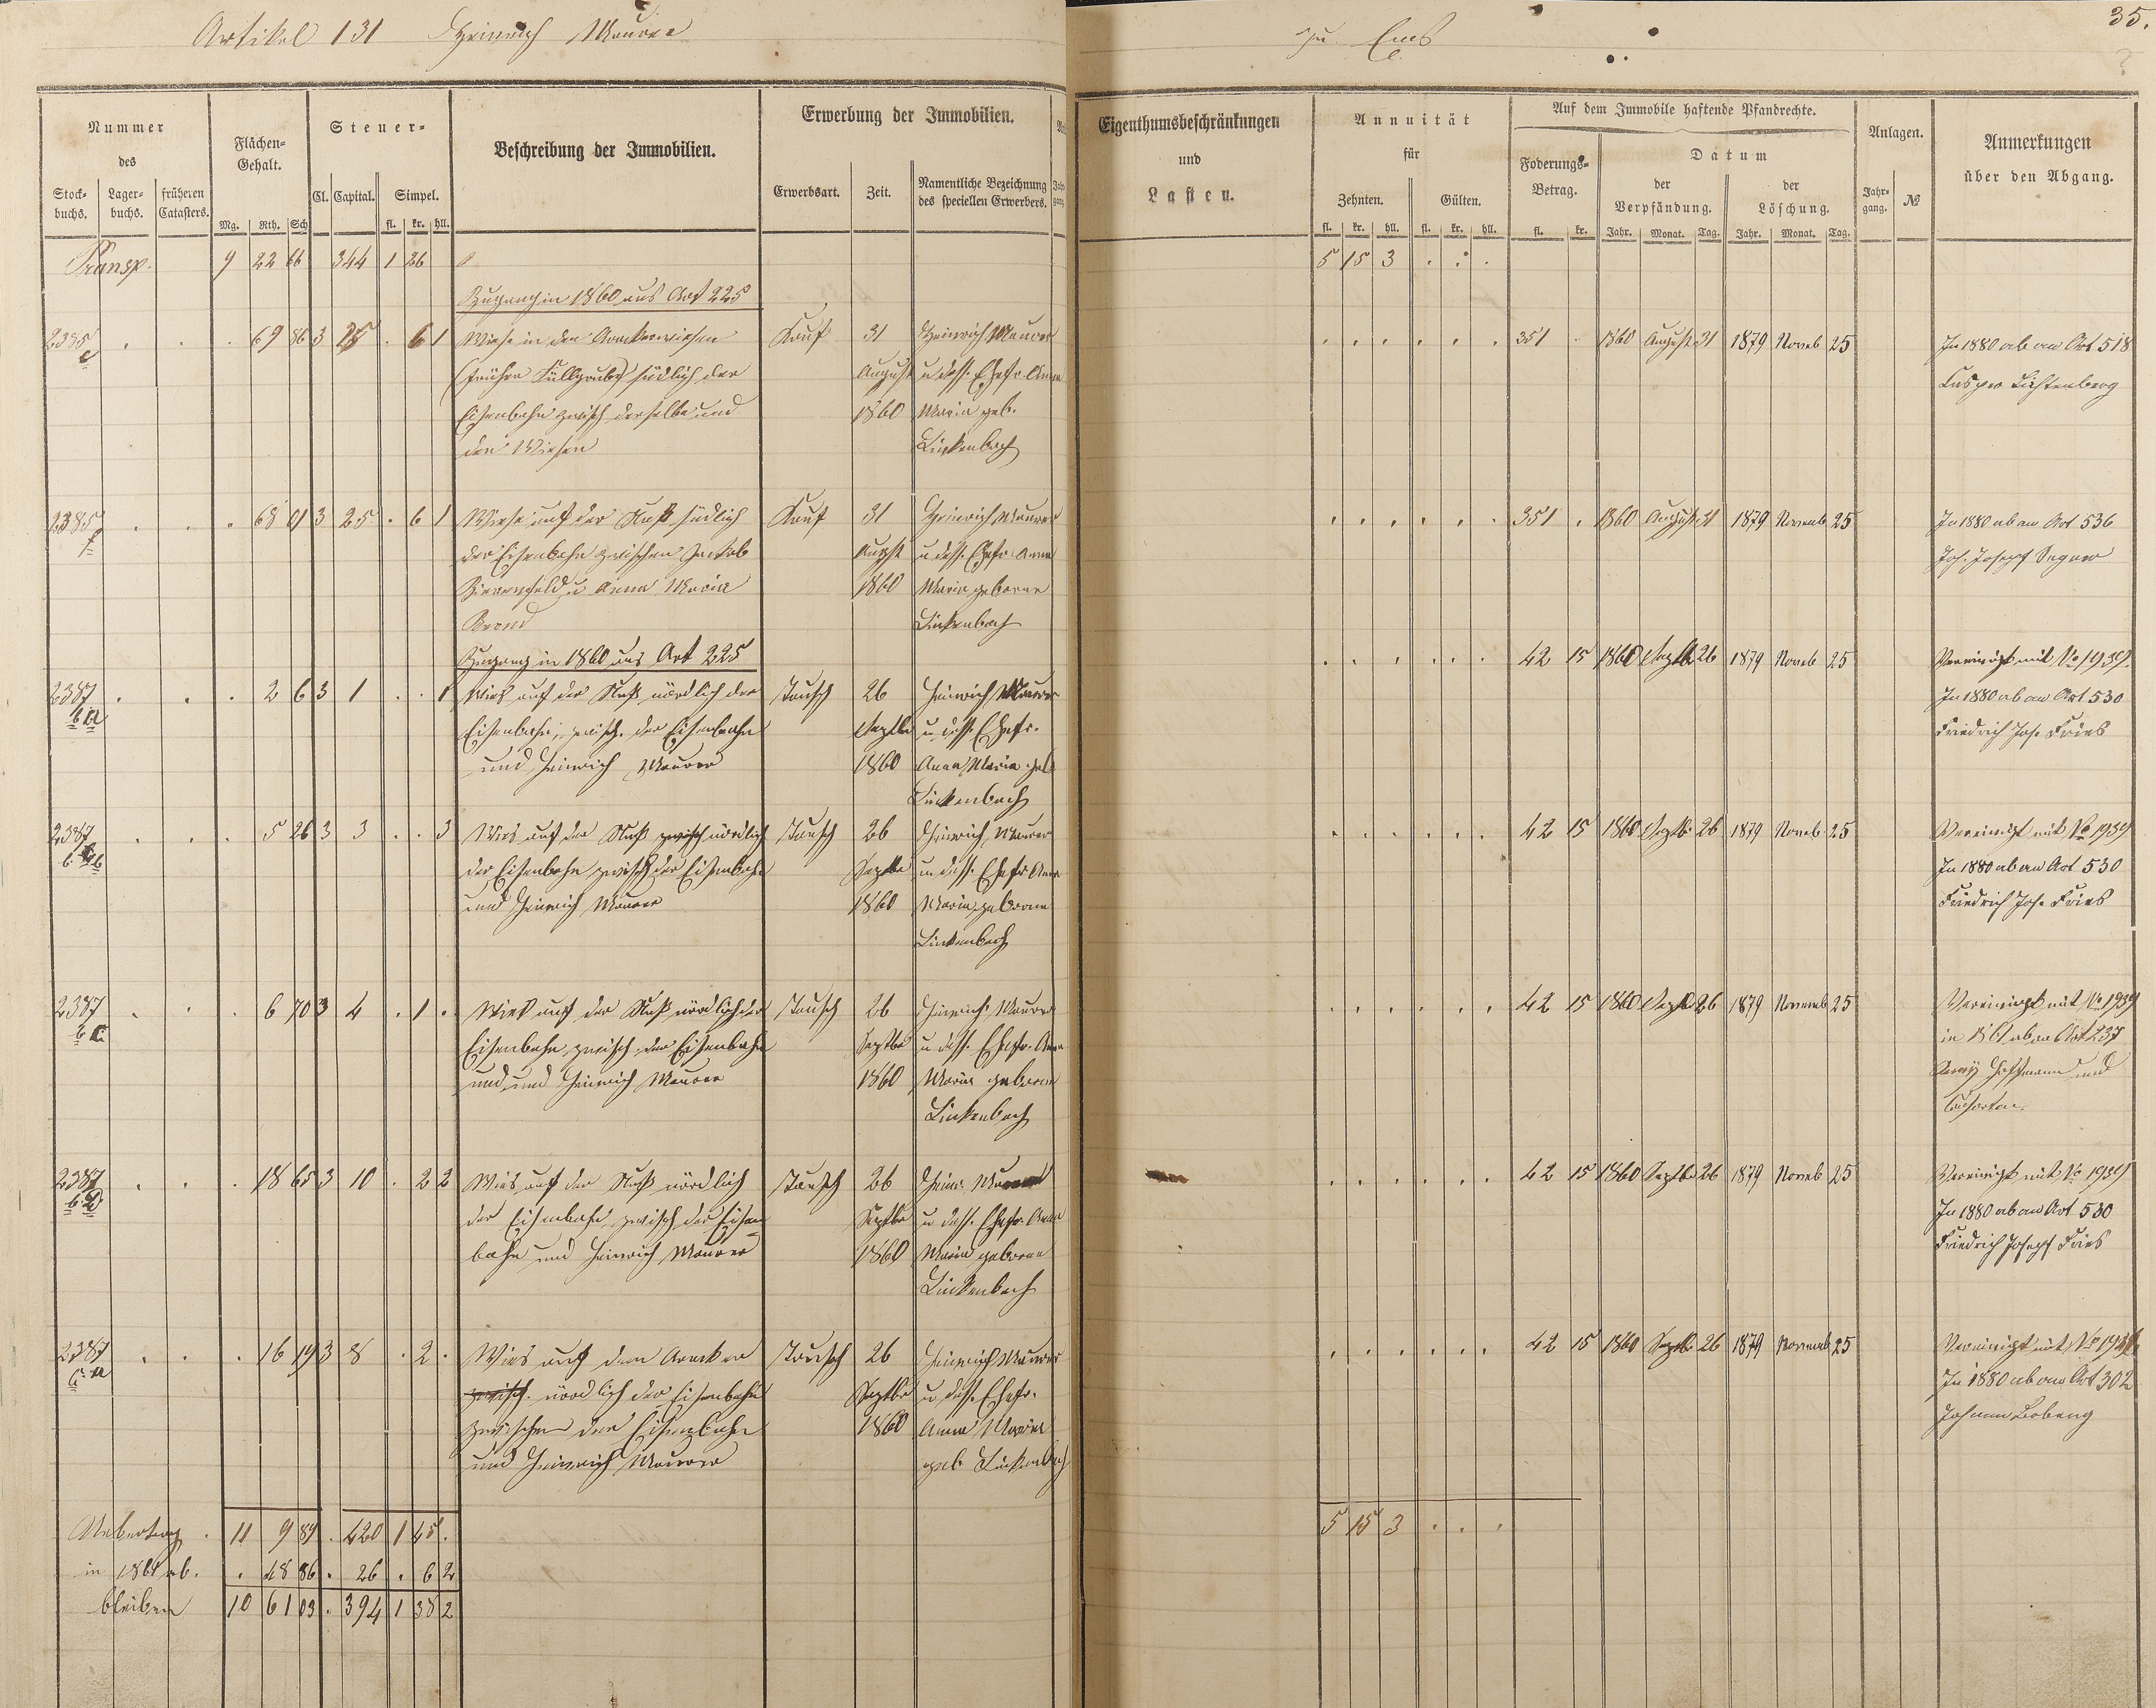 Artikel 131 Heinrich Maurer
zu Ems
35.
Nummer
des
Stock-
buchs.
Lager-
buchs.
früheren
Catasters.
Flächen-
Gehalt.
Mg. Rth. Sch
Steuer-
Cl. Capital. Simpel.
fl. kr. hll.
Beschreibung der Immobilien.
Erwerbung der Immobilien.
Erwerbsart. Zeit.
Namentliche Bezeichnung
des speciellen Erwerbers.
Eigenthumsbeschränkungen
und
Lasten.
Annuität
für
Zehnten. Gülten.
fl. kr. hll. fl. kr. hll.
Auf dem Immobile haftende Pfandrechte.
Foderungs-
Betrag.
fl. kr.
Datum
der
Verpfändung.
der
Löschung.
Jahr. Monat. Tag. Jahr. Monat. Tag.
Anlagen.
Jahr-
gang. №
Anmerkungen
über den Abgang.
Transp. 9 22 66 344 1 26 5 15 3
Zugang in 1860 aus Art 225
2385 69 86 3 25 . 6 1 Wiese in den Kauf 31 Heinrich Maurer 351 . 1860 August 31 1879 Noveb 25 In 1880 ab an Art 518
c (früher Füllgrube) südlich der August u dess. Ehefr. Anna Caspar Lichtenberg
Eisenbahn zwisch derselbe und 1860 Maria geb.
den Wiesen Linkenbach
2385 68 01 3 25 . 6 1 Wiese auf der südlich Kauf 31 Heinrich Maurer 351 . 1860 August 31 1879 Novemb 25 In 1880 ab an Art 536
f der Eisenbahn zwischen Jacob August u dess. Ehefr. Anna Joh. Joseph
u Anna Maria 1860 Maria geborne
Linkenbach
Zugang in 1860 aus Art 225
2387 2 6 3 1 . . 1 Wies auf der nördlich der Tausch 26 Heinrich Maurer 42 15 1860 Septbr 26 1879 Noveb 25 Vereinigt mit No 1939.
b a Eisenbahn, zwisch. der Eisenbahn Septbr u dess. Ehefr. In 1880 ab an Art 530
und Heinrich Maurer 1860 Anna Maria geb Friedrich Jos. Fries
Linkenbach
2387 5 26 3 3 . . 3 Wies auf der zwisch nördlich Tausch 26 Heinrich Maurer 42 15 1860 Septb. 26 1879 Noveb. 25 Vereinigt mit No 1939
b b der Eisenbahn zwisch der Eisenbahn Septbr u dess. Ehefr Anna In 1880 ab an Art 530
und Heinrich Maurer 1860 Maria geborne Friedrich Jos. Fries
Linkenbach
2387 6 70 3 4 . 1 . Wies auf der nördlich der Tausch 26 Heinrich Maurer 42 15 1860 Septb 26 1879 Novemb 25 Vereinigt mit No 1939
b c Eisenbahn, zwisch. der Eisenbahn Septbr u dess. Ehefr. Anna in 1861 ab an Art 237
und und Heinrich Maurer 1860 Maria geborne Hoffmann und
Linkenbach
2387 18 65 3 10 . 2 2 Wies auf der nördlich Tausch 26 Heinr. Maurer 42 15 1860 Septbr 26 1879 Noveb 25 Vereinigt mit No 1939
b d der Eisenbahn, zwisch der Eisen- Septbr u dess. Ehefr. Anna In 1880 ab an Art 530
bahn und Heinrich Maurer 1860 Maria geborne Friedrich Joseph Fries
Linkenbach
2387 16 19 3 8 . 2 . Wies auf dem Tausch 26 Heinrich Maurer 42 15 1860 Septb. 26 1879 Novemb 25 Vereinigt mit No
c a zwisch. nördlich der Eisenbahn Septbr u dess. Ehefr. In 1880 ab an Art 302
zwischen der Eisenbahn 1860 Anna Maria Johann
und Heinrich Maurer geb Linkenbach
Uebertrag . 11 9 89 . 420 1 45 . 5 15 3
in 1861 ab. . 48 86 . 26 . 6 2
bleiben 10 61 03 . 394 1 38 2